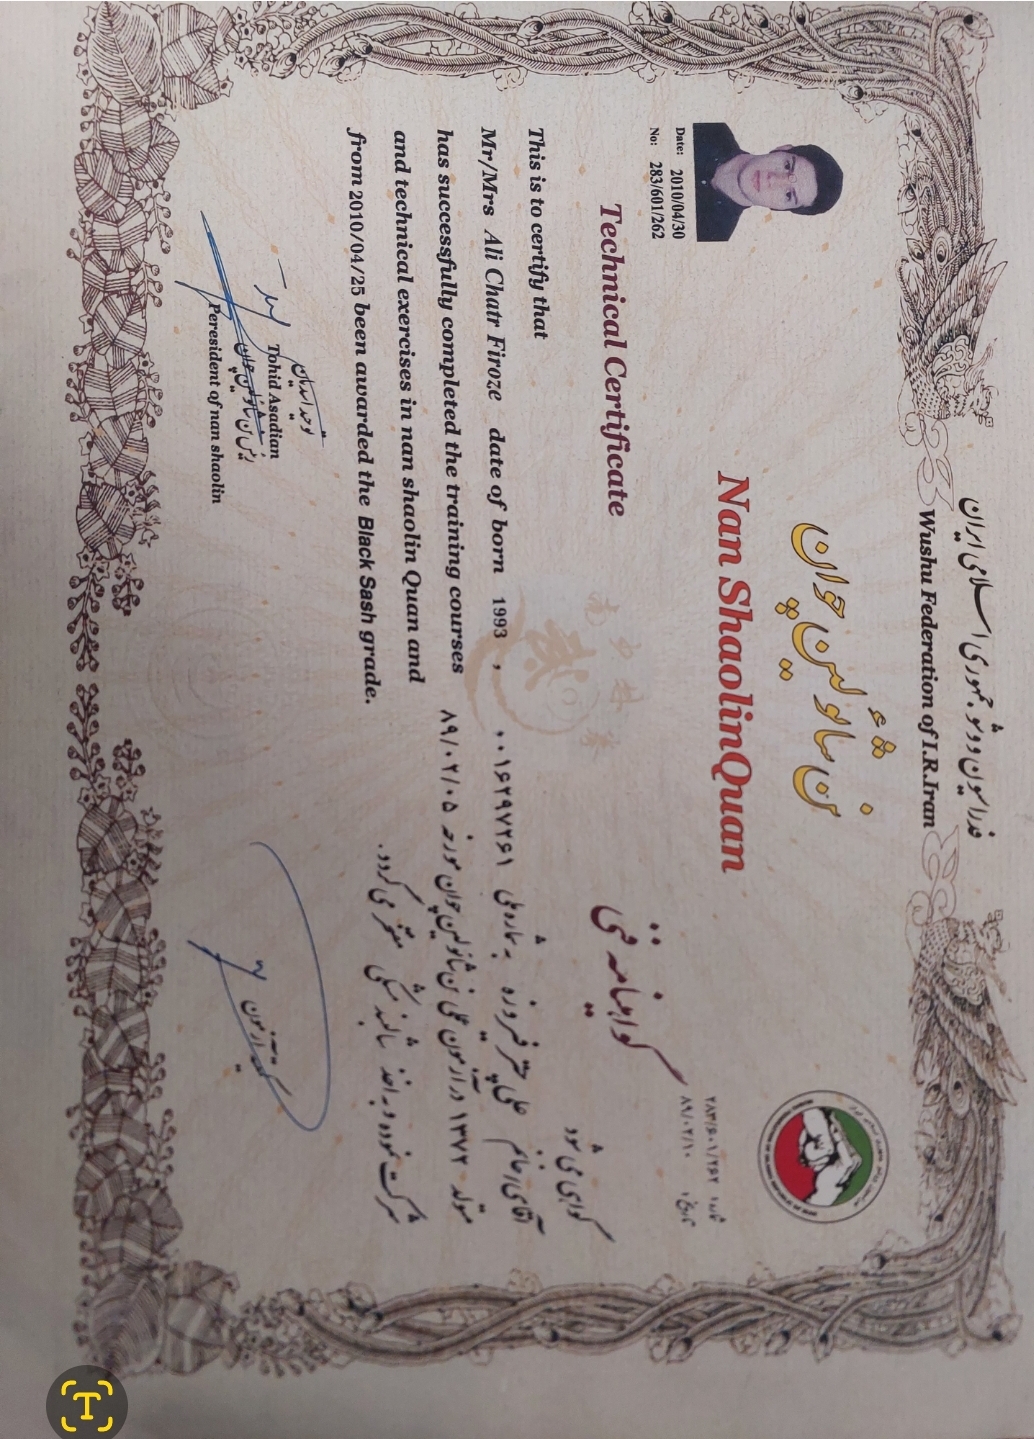 فدراسیون ووشو جمهوری اسلامی ایران
Wushu Federation of I.R.Iran
نن شائولین چوان
Nan ShaolinQuan
Date: 2010/04/30
No: 283/601/262
Technical Certificate
This is to certify that
Mr/Mrs Ali Chatr Firoze date of born 1993 ,
has successfully completed the training courses
and technical exercises in nan shaolin Quan and
from 2010/04/25 been awarded the Black Sash grade.
توحید اسدیان
Tohid Asadian
رئیس نن شائولین چوان
Peresident of nan shaolin
شماره: ۲۸۳/۶۰۱/۲۶۲
تاریخ: ۸۹/۰۲/۱۰
گواهینامه فنی
گواهی می شود
آقای/خانم علی چترفیروزه به شماره ملی ۰۰۱۶۲۹۷۲۶۱
متولد ۱۳۷۲ در آزمون فنی نن شائولین چوان مورخه ۸۹/۰۲/۰۵
شرکت نموده و به اخذ شالبند مشکی مفتخر می گردد.
کمیته آزمون